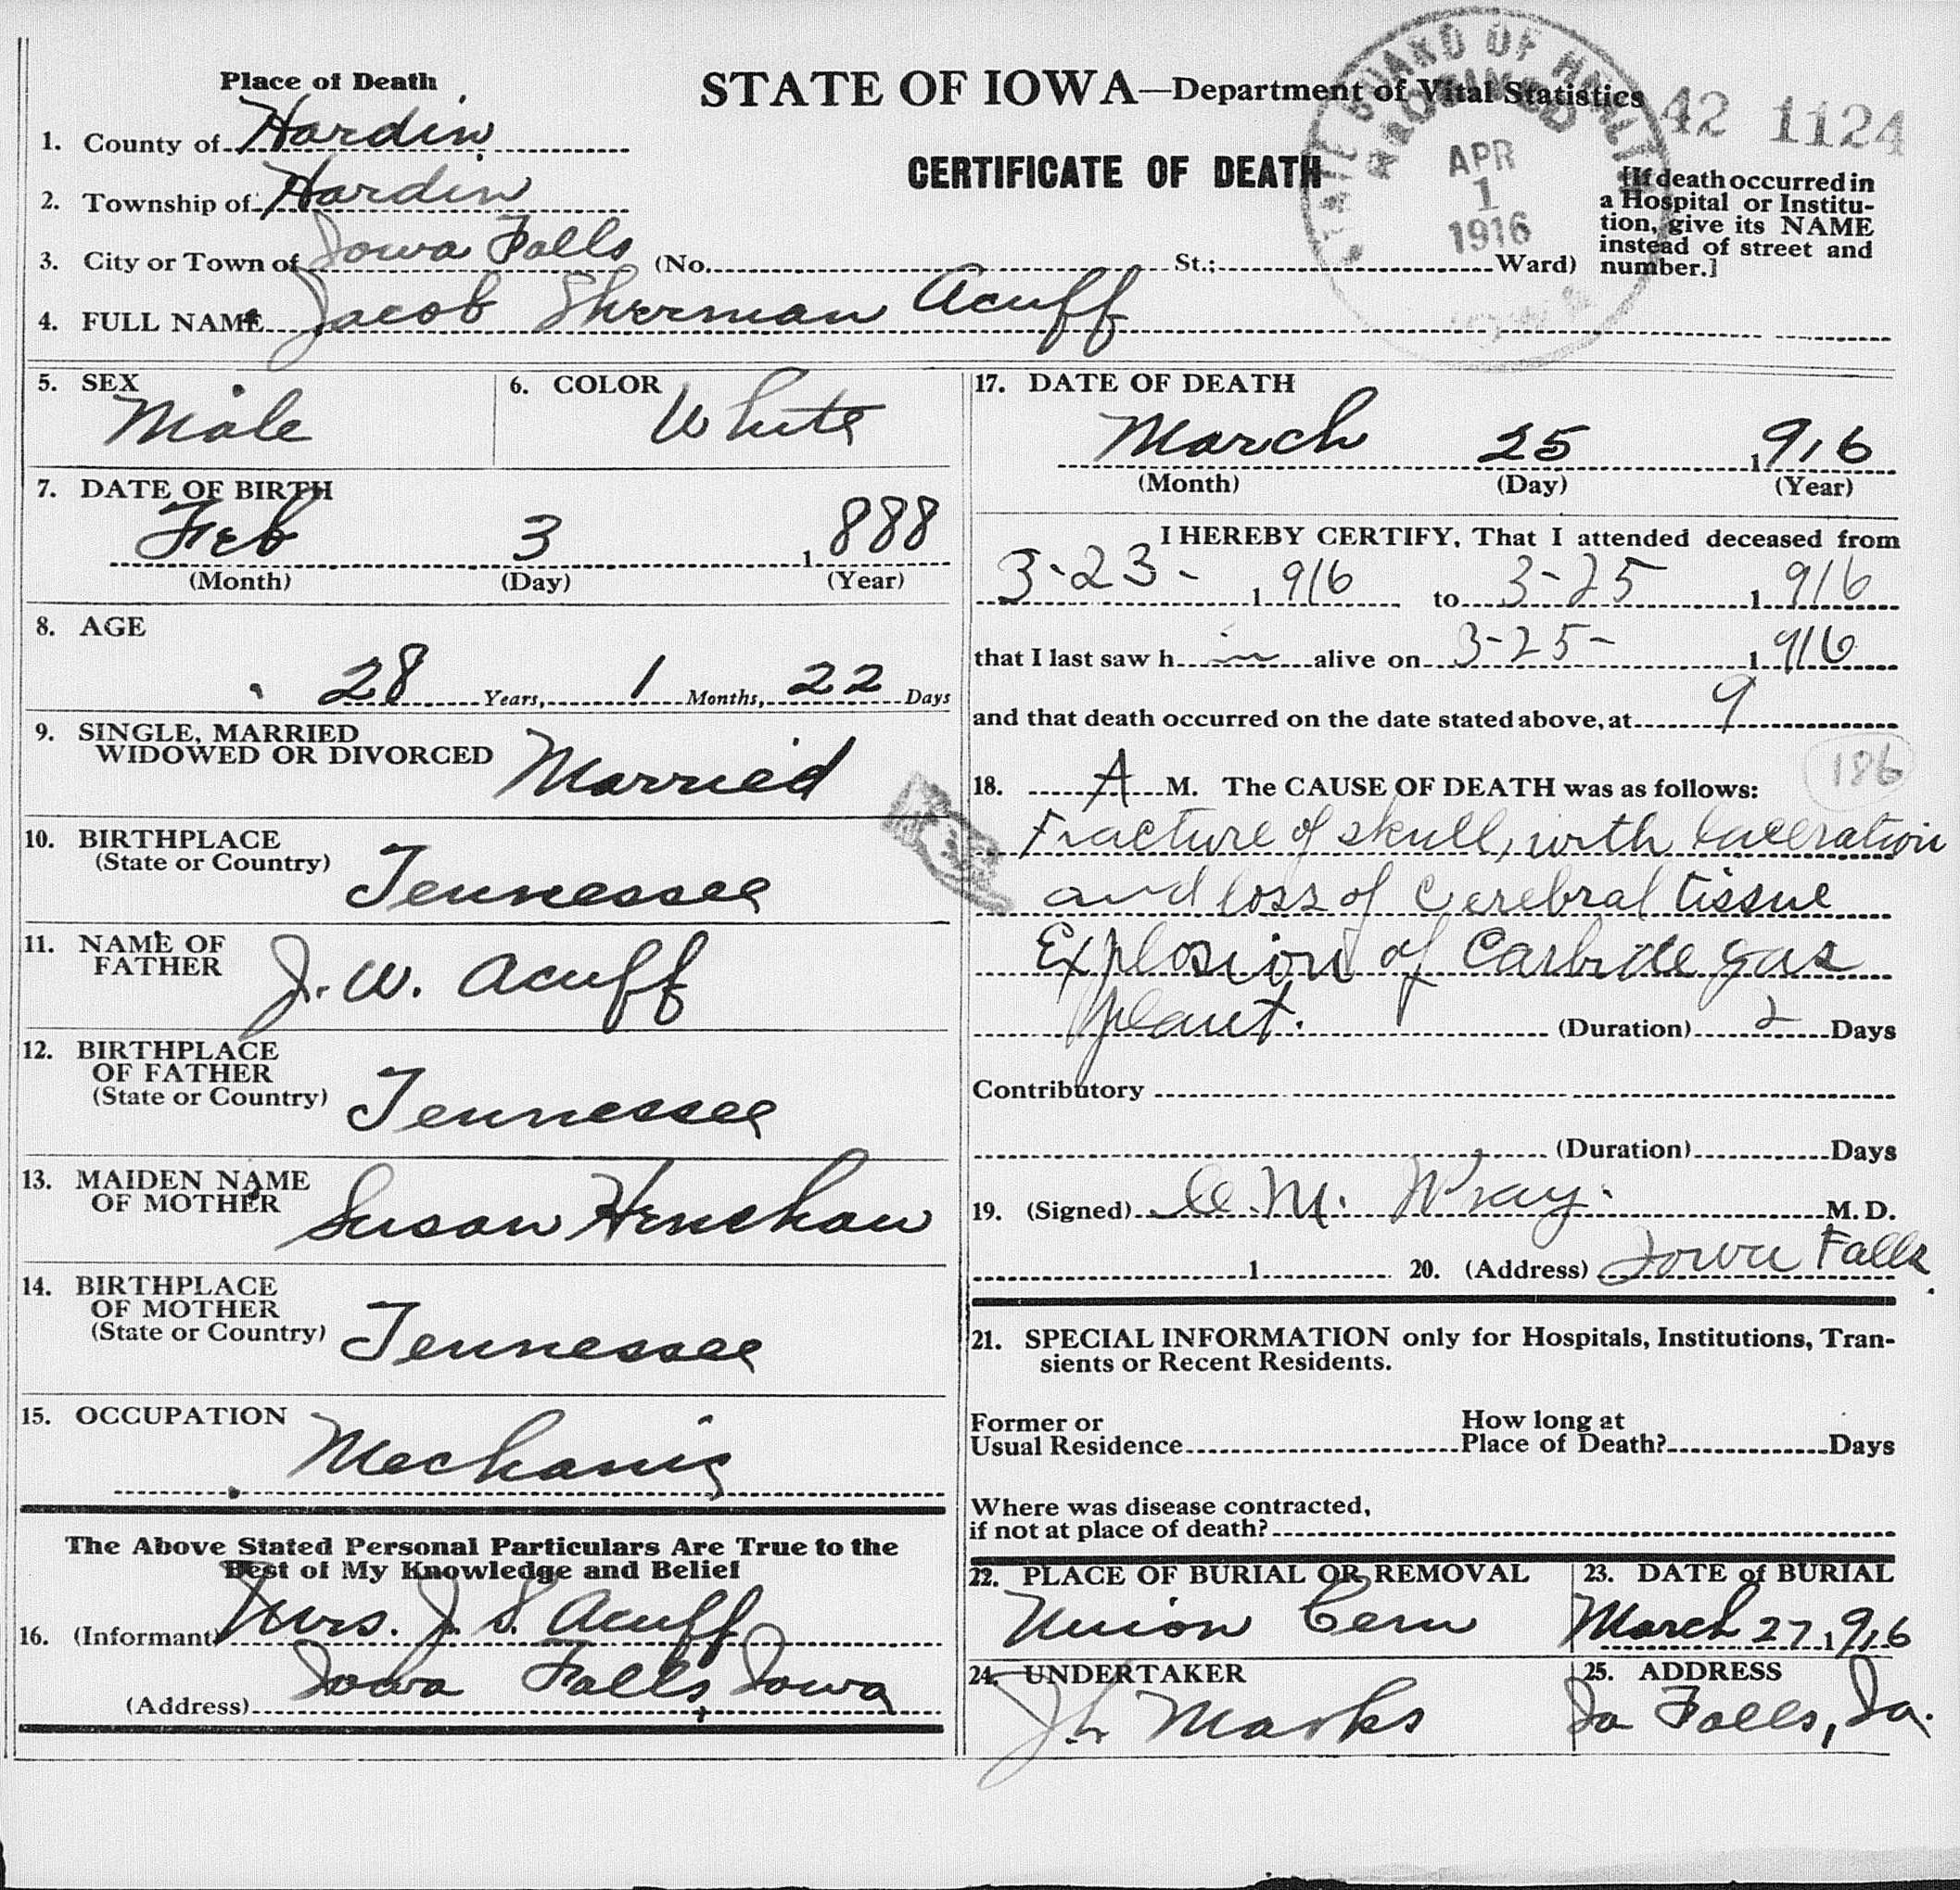 Place of Death
STATE OF IOWA—Department of Vital Statistics
STATE BOARD OF HEALTH
APR
1
1916
42 1124
1. County of Hardin
CERTIFICATE OF DEATH
2. Township of Hardin
[If death occurred in
a Hospital or Institu-
tion, give its NAME
instead of street and
number.]
3. City or Town of Iowa Falls (No. St.; Ward)
4. FULL NAME Jacob Sherman Acuff
5. SEX
Male
6. COLOR
White
7. DATE OF BIRTH
Feb 3 1888
(Month) (Day) (Year)
8. AGE
28 Years, 1 Months, 22 Days
9. SINGLE, MARRIED
WIDOWED OR DIVORCED Married
10. BIRTHPLACE
(State or Country) Tennessee
11. NAME OF
FATHER J. W. Acuff
12. BIRTHPLACE
OF FATHER
(State or Country) Tennessee
13. MAIDEN NAME
OF MOTHER Susan Henshaw
14. BIRTHPLACE
OF MOTHER
(State or Country) Tennessee
15. OCCUPATION
Mechanic
The Above Stated Personal Particulars Are True to the
Best of My Knowledge and Belief
16. (Informant) Mrs. J. S. Acuff
(Address) Iowa Falls, Iowa
17. DATE OF DEATH
March 25 1916
(Month) (Day) (Year)
I HEREBY CERTIFY, That I attended deceased from
3-23- 1916 to 3-25 1916
that I last saw h im alive on 3-25- 1916
and that death occurred on the date stated above, at 9
186
18. A M. The CAUSE OF DEATH was as follows:
Fracture of skull, with laceration
and loss of cerebral tissue
Explosion of Carbide gas
plant. (Duration) 2 Days
Contributory
(Duration) Days
19. (Signed) C. M. Wray. M. D.
1 20. (Address) Iowa Falls.
21. SPECIAL INFORMATION only for Hospitals, Institutions, Tran-
sients or Recent Residents.
Former or
Usual Residence
How long at
Place of Death? Days
Where was disease contracted,
if not at place of death?
22. PLACE OF BURIAL OR REMOVAL
Union Cem
23. DATE of BURIAL
March 27, 1916
24. UNDERTAKER
Marks
25. ADDRESS
Ia Falls, Ia.